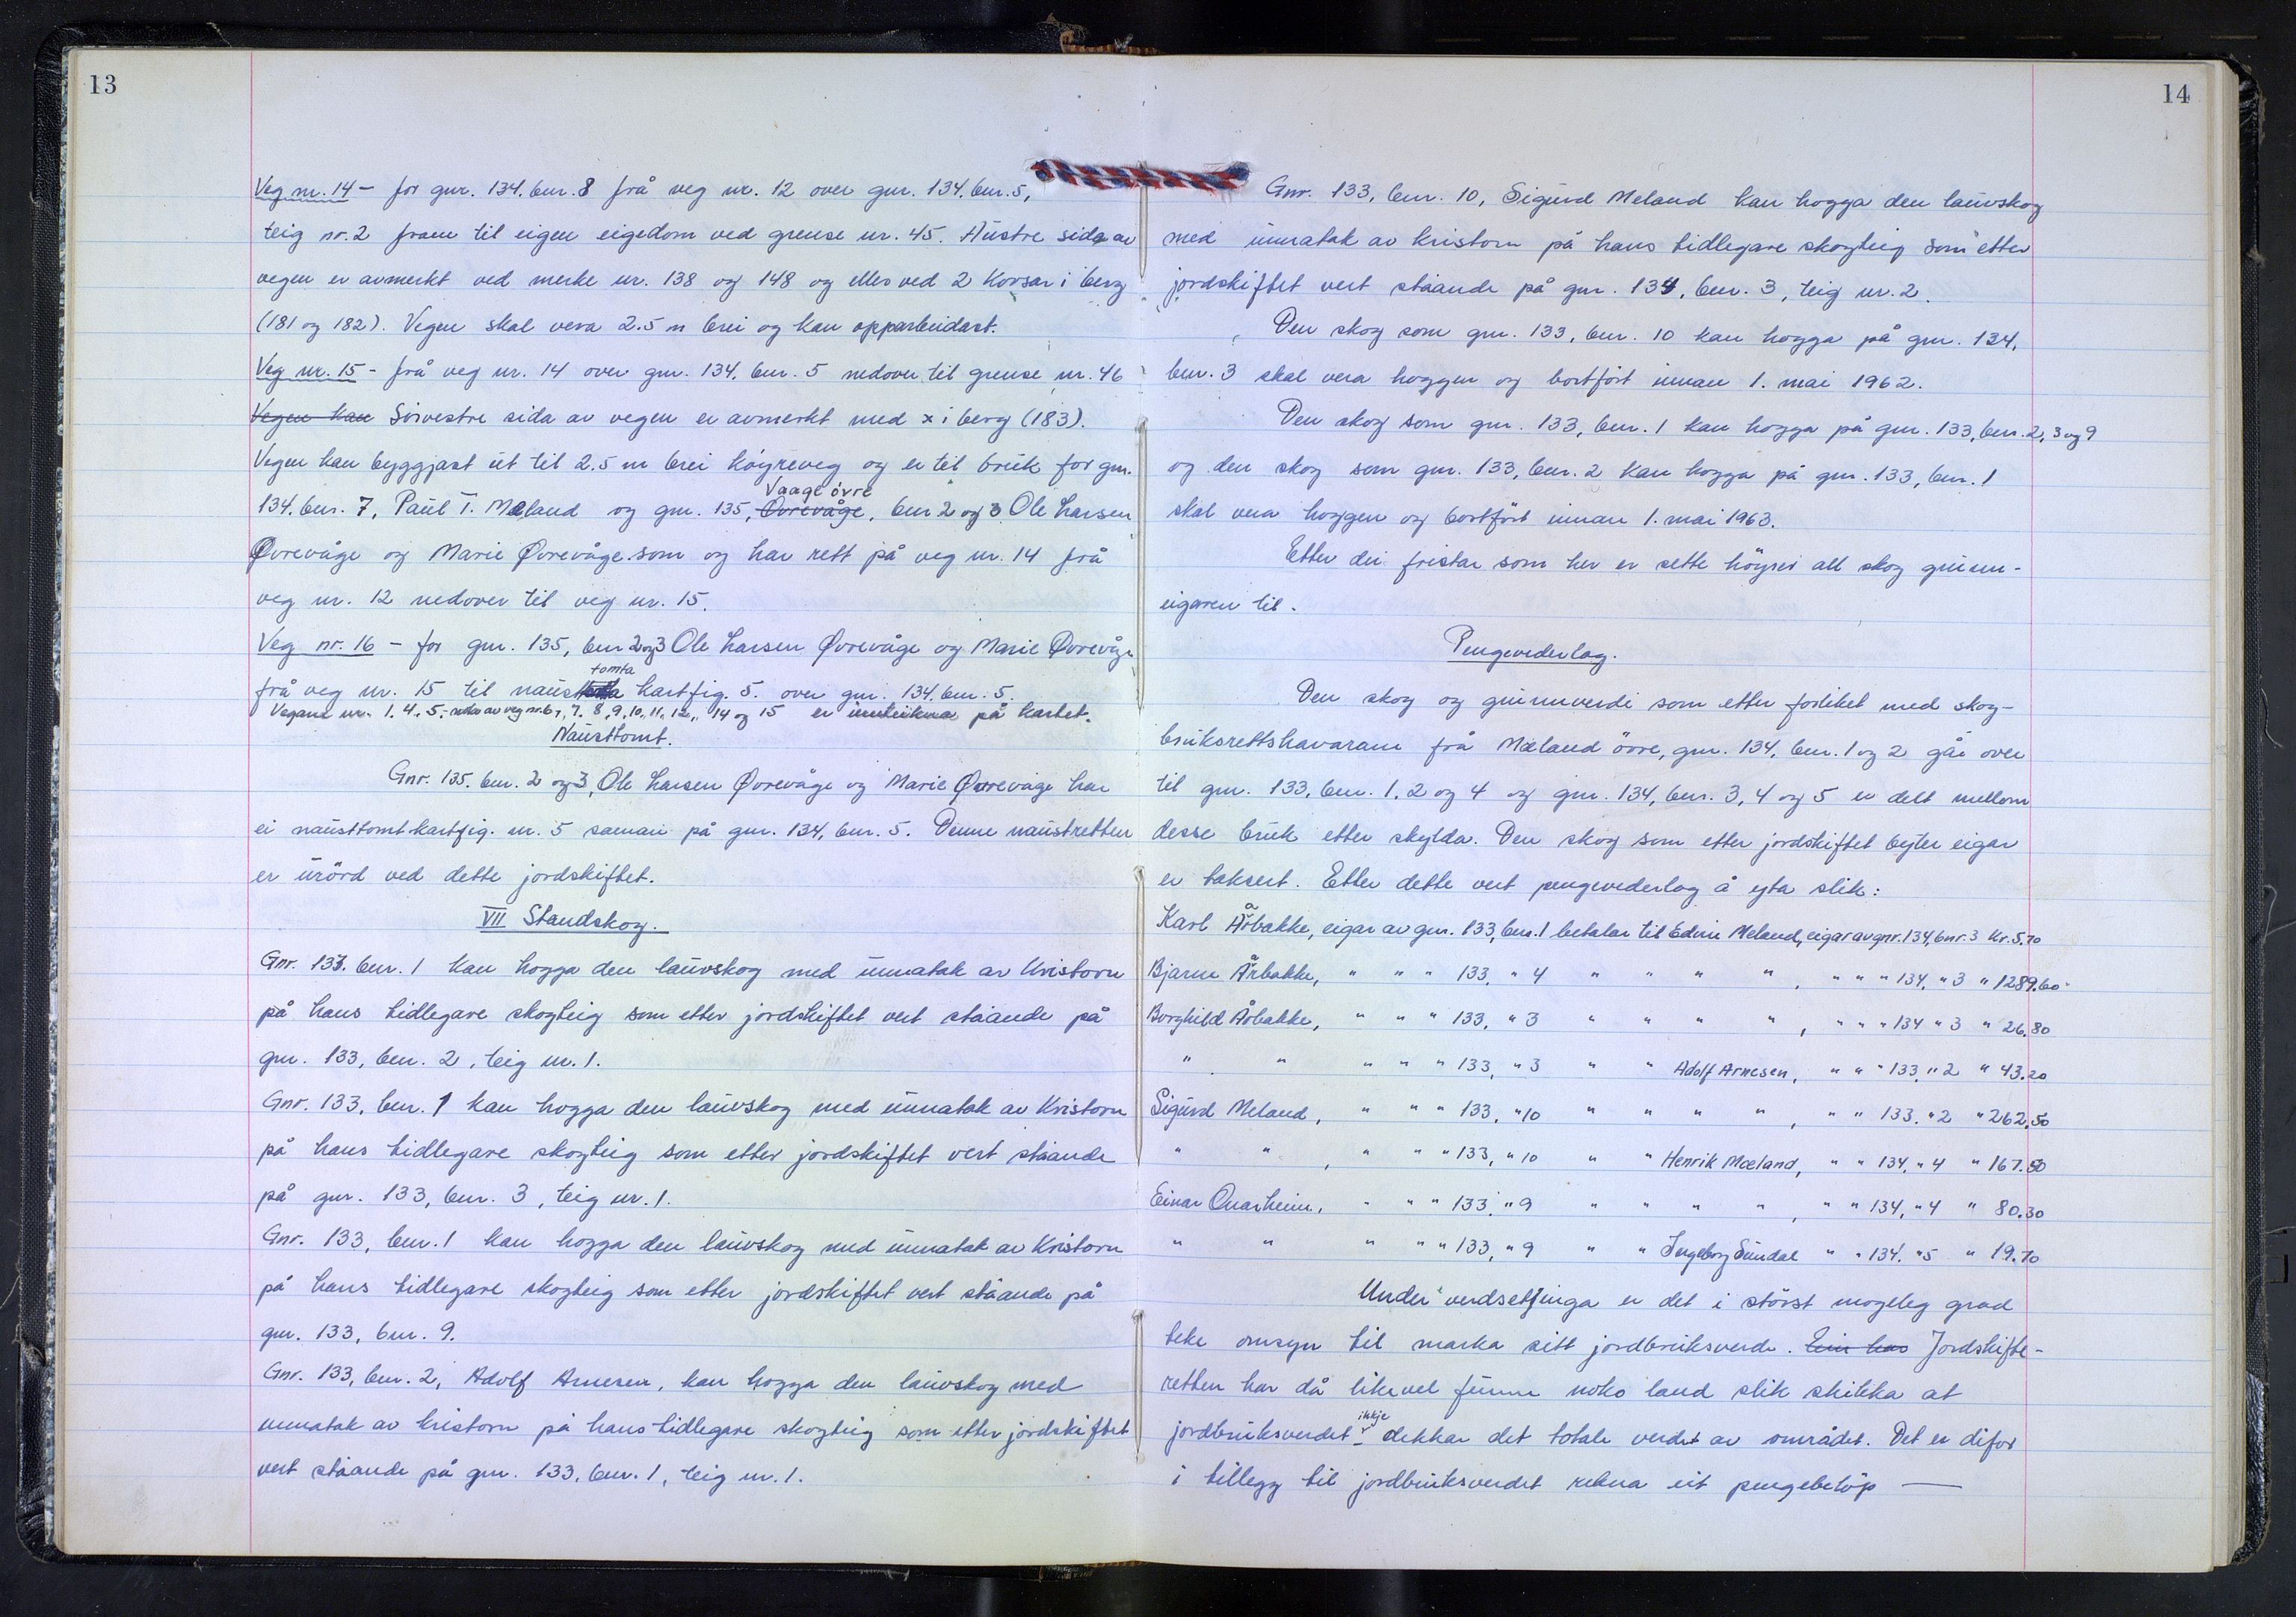 13
Veg nr. 14 - for gnr. 134. bnr. 8 frå veg nr. 12 over gnr. 134. bnr. 5,
teig nr. 2 fram til eigen eigedom ved grense nr. 45. Austre sida av
vegen er avmerkt ved merke nr. 138 og 148 og elles ved 2 Korsar i berg
(181 og 182). Vegen skal vera 2.5 m brei og kan opparbeidast.
Veg nr. 15 - frå veg nr. 14 over gnr. 134. bnr. 5 nedover til grense nr. 46
Vegen kan Sørvestre sida av vegen er avmerkt med x i berg (183).
Vegen kan byggjast ut til 2.5 m brei køyreveg og er til bruk for gnr.
134. bnr. 7, Paul T. Mæland og gnr. 135, Øvrevåge, Vaage øvre bnr 2 og 3 Ole Larsen
Øvrevåge og Marie Øvrevåge som og har rett på veg nr. 14 frå
veg nr. 12 nedover til veg nr. 15.
Veg nr. 16 - for gnr. 135, bnr 2 og 3 Ole Larsen Øvrevåge og Marie Øvrevåge
frå veg nr. 15 til naust tomta Kartfig. 5. over gnr. 134. bnr. 5.
Vegane nr. 1, 4, 5, nedre av veg nr. 6, 7, 8, 9, 10, 11, 12, 14 og 15 er innteikna på kartet.
Nausttomt.
Gnr. 135. bnr. 2 og 3, Ole Larsen Øvrevåge og Marie Øvrevåge har
ei nausttomt kartfig. nr. 5 saman på gnr. 134, bnr. 5. Denne naustretten
er urörd ved dette jordskiftet.
VII Standskog.
Gnr. 133. bnr. 1 kan hogga den lauvskog med unnatak av Kristorn
på hans tidlegare skogteig som etter jordskiftet vert ståande på
gnr. 133, bnr. 2, teig nr. 1.
Gnr. 133, bnr. 1 kan hogga den lauvskog med unnatak av Kristorn
på hans tidlegare skogteig som etter jordskiftet vert ståande
på gnr. 133, bnr. 3, teig nr. 1.
Gnr. 133, bnr. 1 kan hogga den lauvskog med unnatak av Kristorn
på hans tidlegare skogteig som etter jordskiftet vert ståande på
gnr. 133, bnr. 9.
Gnr. 133, bnr. 2, Adolf Arnesen, kan hogga den lauvskog med
unnatak av kristorn på hans tidlegare skogteig som etter jordskiftet
vert ståande på gnr. 133, bnr. 1, teig nr. 1.
14
Gnr. 133, bnr. 10, Sigurd Meland kan hogga den lauvskog
med unnatak av kristorn på hans tidlegare skogteig som etter
jordskiftet vert ståande på gnr. 134, bnr. 3, teig nr. 2.
Den skog som gnr. 133, bnr. 10 kan hogga på gnr. 134,
bnr. 3 skal vera hoggen og bortført innan 1. mai 1962.
Den skog som gnr. 133, bnr. 1 kan hogga på gnr. 133, bnr. 2, 3 og 9
og den skog som gnr. 133, bnr. 2 kan hogga på gnr. 133, bnr. 1
skal vera hoggen og bortført innan 1. mai 1963.
Etter dei fristar som her er sette höyrer all skog grunn-
eigaren til.
Pengevederlag.
Den skog og grunnverdi som etter forliket med skog-
bruksrettshavarane frå Mæland övre, gnr. 134, bnr. 1 og 2 går over
til gnr. 133, bnr. 1, 2 og 4 og gnr. 134, bnr. 3, 4 og 5 er delt mellom
desse bruk etter skylda. Den skog som etter jordskiftet byter eigar
er taksert. Etter dette vert pengevederlag å yta slik:
Karl Årbakke, eigar av gnr. 133, bnr. 1 betalar til Edvin Meland, eigar av gnr. 134, bnr. 3 Kr. 5.70
Bjarne Årbakke, " " " 133, " 4 " " " " , " " " 134, " 3 " 1289.60
Borghild Årbakke, " " " 133, " 3 " " " " , " " " 134 " 3 " 26.80
" " " " " 133, " 3 " " Adolf Arnesen, " " " 133, " 2 " 43.20
Sigurd Meland, " " " 133, " 10 " " " " , " " 133, " 2 " 262.50
" " , " " " 133, " 10 " " Henrik Mæland, " " 134, " 4 " 167.50
Einar Onarheim, " " " 133, " 9 " " " " , " " 134, " 4 " 80.30
" " " " " 133, " 9 " " Ingeborg Sundal " " 134. " 5 " 19.70
Under verdsetjinga er det i størst mogeleg grad
teke omsyn til marka sitt jordbruksverde. Ein har Jordskifte-
retten har då likevel funne noko land slik skikka at
jordbruksverdet ikkje dekkar det totale verdet av området. Det er difor
i tillegg til jordbruksverdet rekna eit pengebeløp —